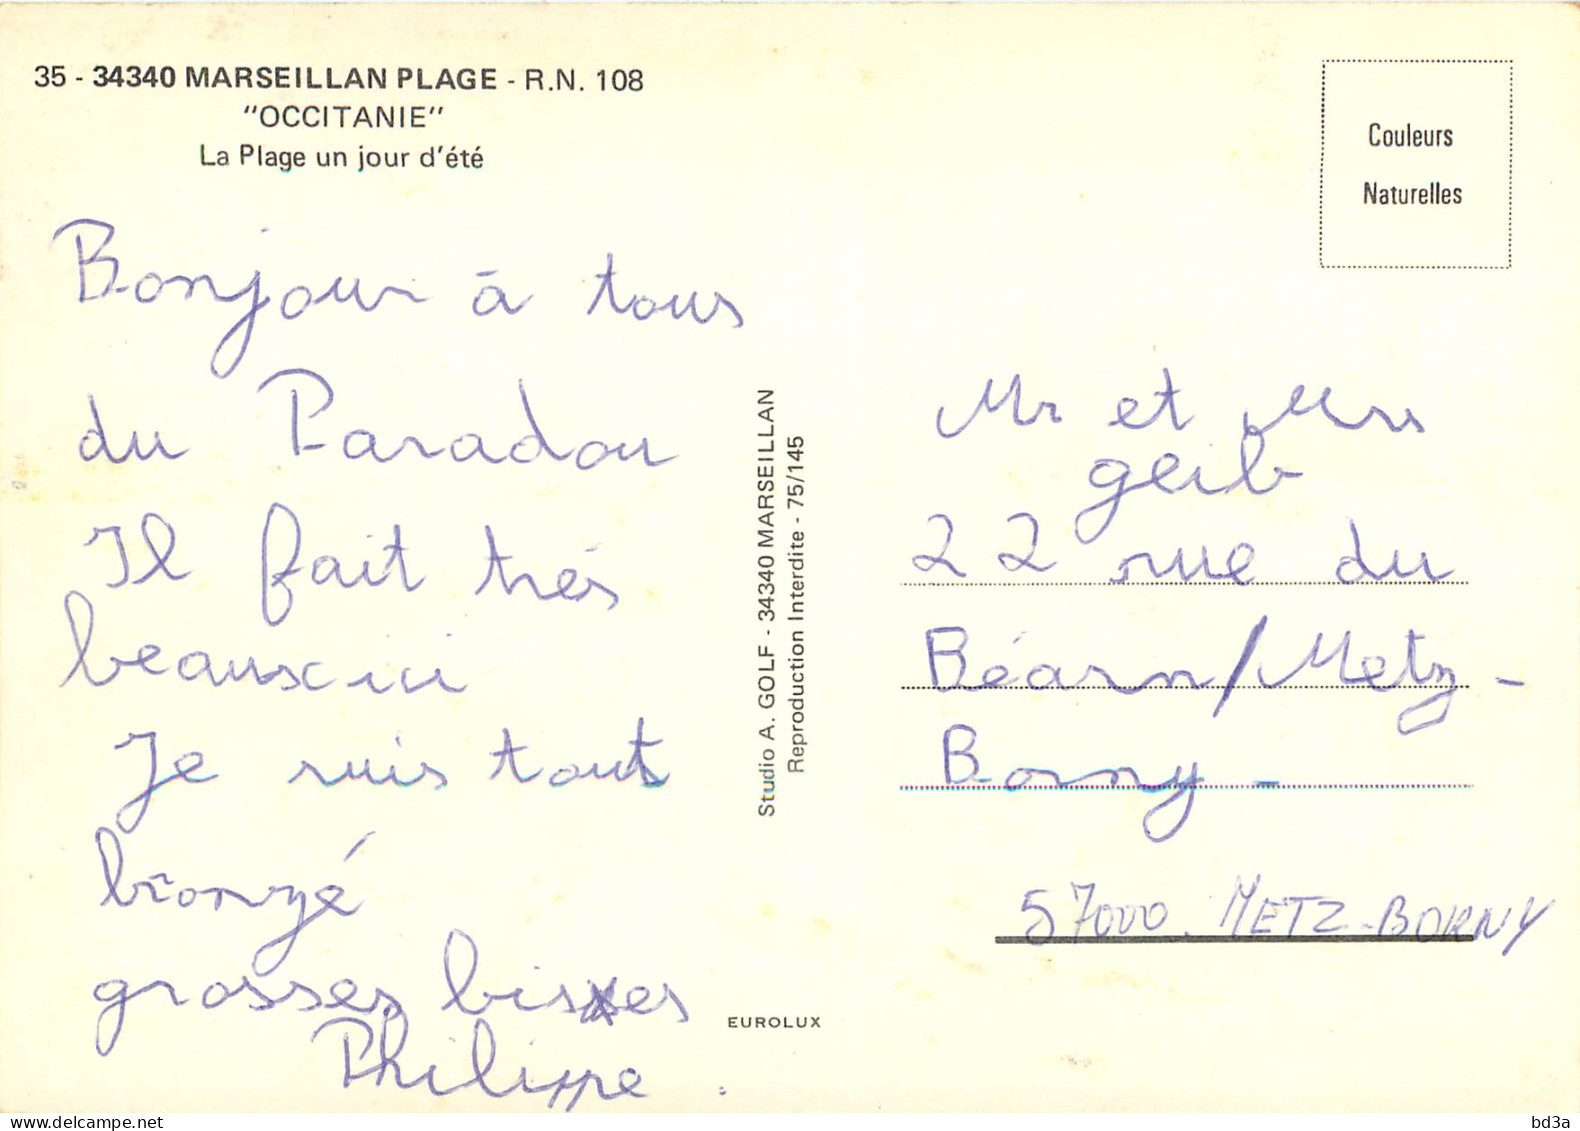 35 - 34340 MARSEILLAN PLAGE - R.N. 108
"OCCITANIE"
La Plage un jour d'été
Couleurs
Naturelles
Bonjour à tous
du Paradou
Il fait très
beaux ici
Je suis tout
bronzé
grosses bises
Philippe
Studio A. GOLF - 34340 MARSEILLAN
Reproduction Interdite - 75/145
EUROLUX
Mr et Mrs
geib
22 rue du
Béarn/Metz-
Borny-
57000. METZ-BORNY
delcampe.net
bd3a